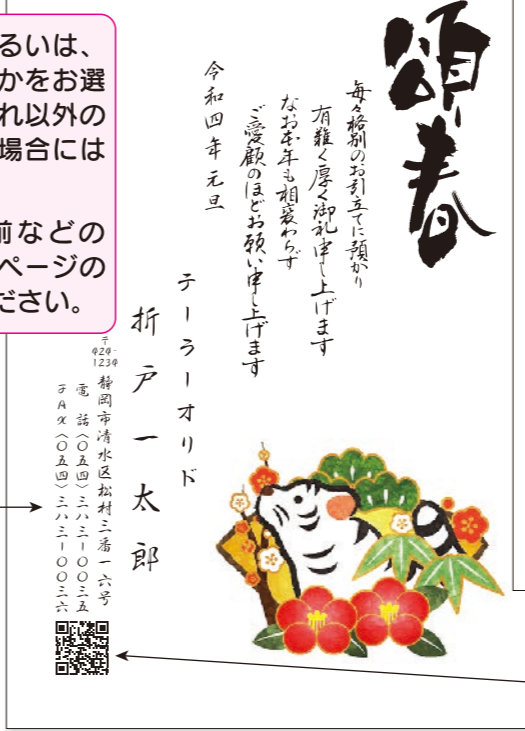 るいは、
かをお選
れ以外の
場合には
前などの
ページの
ださい。
頌春
毎々格別のお引立てに預かり
有難く厚く御礼申し上げます
なお本年も相変わらず
ご愛顧のほどお願い申し上げます
令和四年元旦
テーラーオリド
折戸一太郎
〒424-1234
静岡市清水区松村三番一六号
電話〈〇五四〉三八三一〇〇三五
FAX〈〇五四〉三八三一〇〇三六